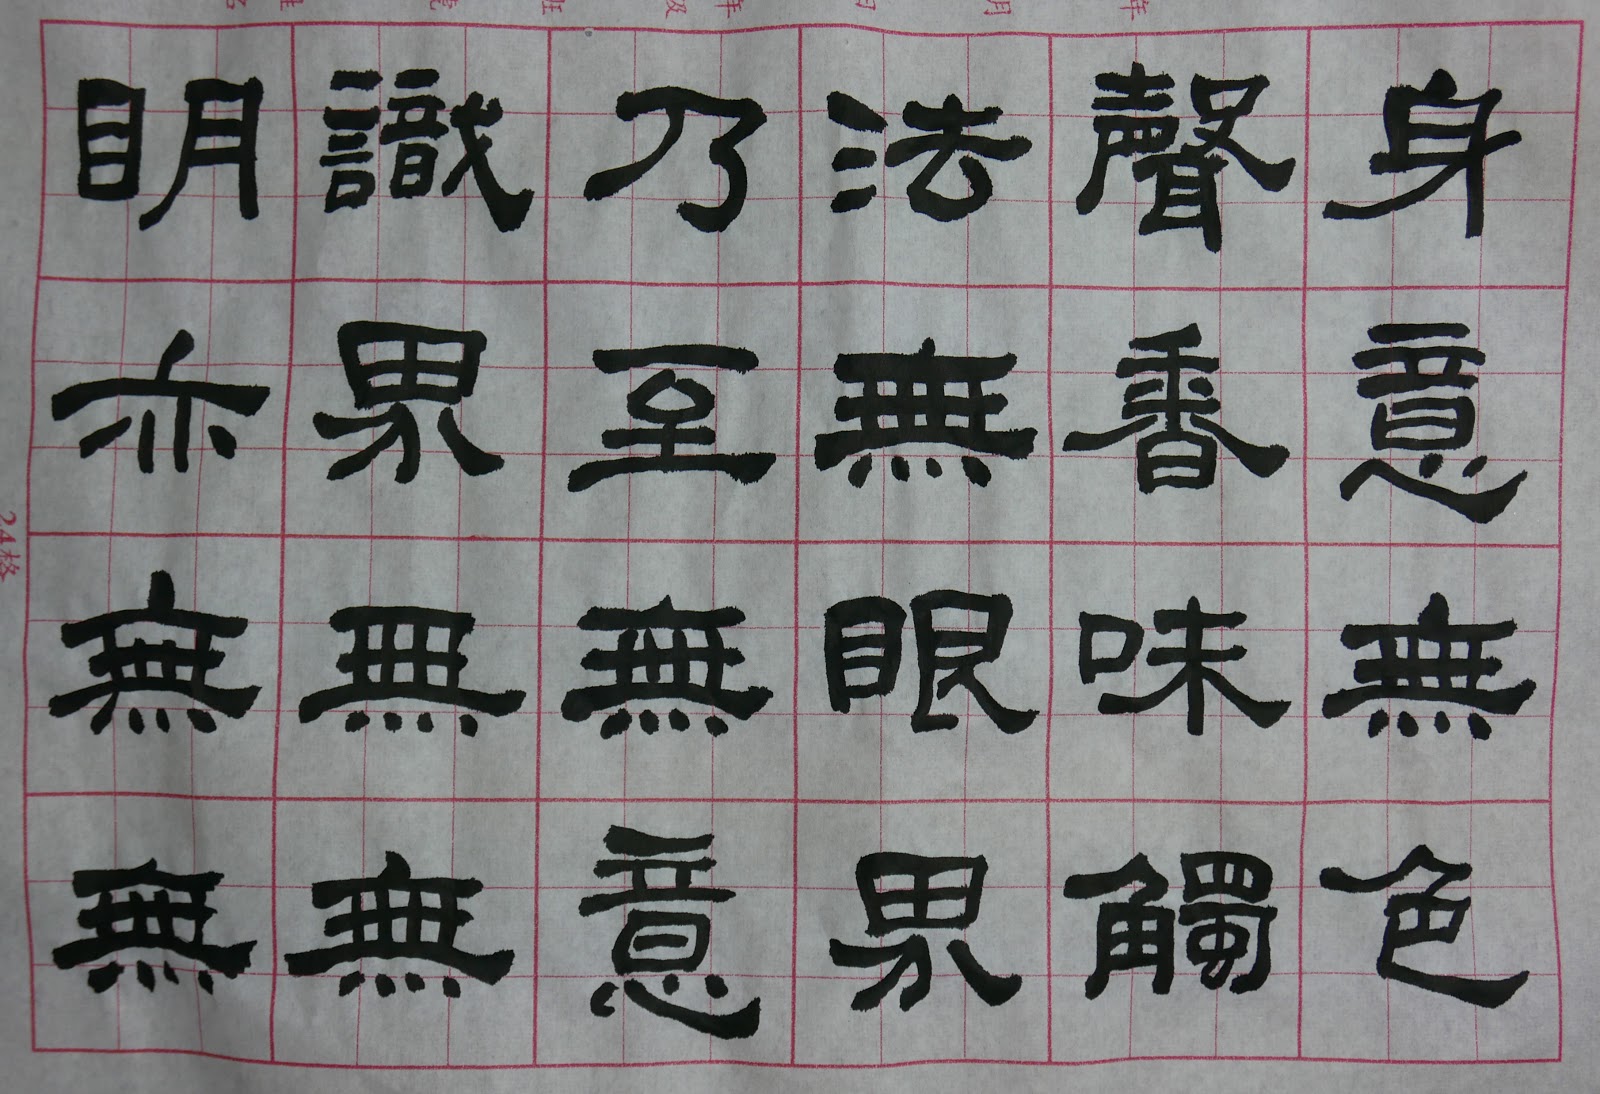 年 月 年 班
身意無色
聲香味觸
法無眼界
乃至無意
識界無無
明亦無無
24格